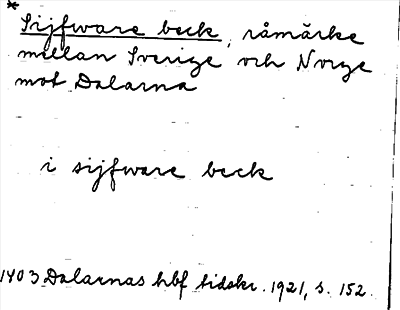 * Sijfware beck, råmärke
mellan Sverige och Norge
mot Dalarna
i sijfware beck
1403 Dalarnas hbf tidskr. 1921, s. 152.